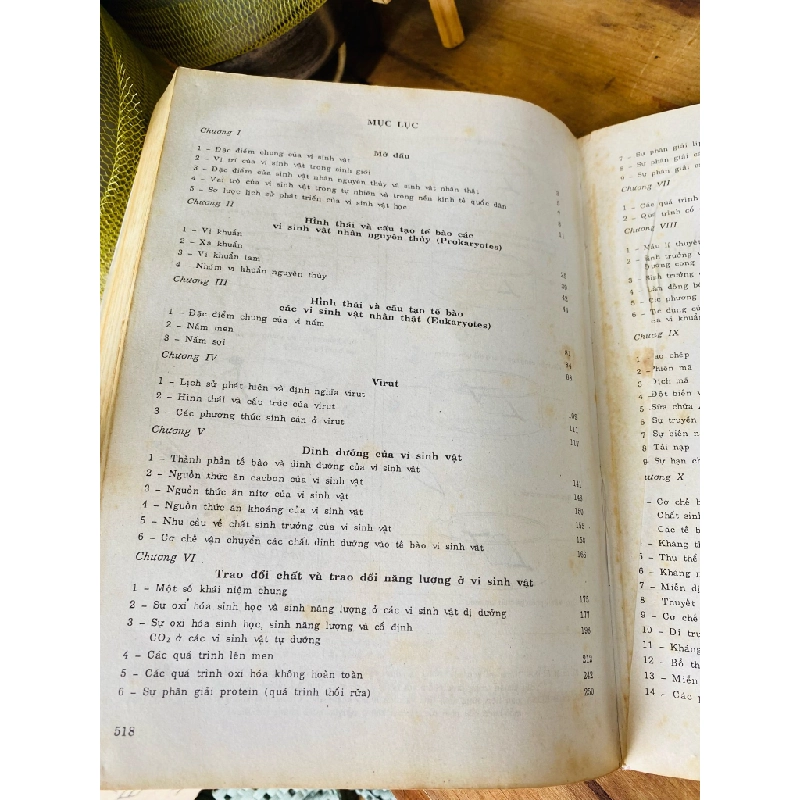 MỤC LỤC
Chương I
Mở đầu
1 - Đặc điểm chung của vi sinh vật
2 - Vị trí của vi sinh vật trong sinh giới
3 - Đặc điểm của sinh vật nhân nguyên thủy vi sinh vật nhân thật
4 - Vai trò của vi sinh vật trong tự nhiên và trong nền kinh tế quốc dân
5 - Sơ lược lịch sử phát triển của vi sinh vật học
Chương II
Hình thái và cấu tạo tế bào các
vi sinh vật nhân nguyên thủy (Prokaryotes)
1 - Vi khuẩn
2 - Xạ khuẩn
3 - Vi khuẩn lam
4 - Nhóm vi khuẩn nguyên thủy
Chương III
Hình thái và cấu tạo tế bào
các vi sinh vật nhân thật (Eukaryotes)
1 - Đặc điểm chung của vi nấm
2 - Nấm men
3 - Nấm sợi
Chương IV
Virut
1 - Lịch sử phát hiện và định nghĩa virut
2 - Hình thái và cấu trúc của virut
3 Các phương thức sinh sản ở virut
Chương V
Dinh dưỡng của vi sinh vật
1 - Thành phần tế bào và dinh dưỡng của vi sinh vật
2 - Nguồn thức ăn cacbon của vi sinh vật
3 - Nguồn thức ăn nitơ của vi sinh vật
4 - Nguồn thức ăn khoáng của vi sinh vật
5 - Nhu cầu về chất sinh trưởng của vi sinh vật
6 - Cơ chế vận chuyển các chất dinh dưỡng vào tế bào vi sinh vật
Chương VI
Trao đổi chất và trao đổi năng lượng ở vi sinh vật
1 - Một số khái niệm chung
2 - Sự oxi hóa sinh học và sinh năng lượng ở các vi sinh vật dị dưỡng 177
3 - Sự oxi hóa sinh học, sinh năng lượng và cố định
CO₂ ở các vi sinh vật tự dưỡng
4 - Các quá trình lên men
5 - Các quá trình oxi hóa không hoàn toàn 242
6 - Sự phân giải protein (quá trình thối rửa) 250
518
7 - Sự phân giải
8 - Sự phân giải
9 - Sự phân giải
Chương VII
1 - Các quá trình
2 - Quá trình cố
Chương VIII
1 - Mẫu lý thuyết
2 - Ảnh hưởng
Đường cong
3 - Sinh trưởng
4 - Làm đồng bộ
5 - Các phương
6 - Tác dụng của
của vi khuẩn
Chương IX
1 Sao chép
2 Phiên mã
3 Dịch mã
4 Đột biến
5 Sửa chữa
6 Sự truyền
7 Sự biến
8 Tải nạp
9 Sự hạn
ương X
- Cơ chế
Chất sinh
Các tế
- Kháng
5 - Thụ thể
6 - Kháng
7 - Miễn dị
8 Thuyết
9 - Cơ chế
10 - Di
11 - Kháng
12 - Bổ
13 - Miễn
14 - Các